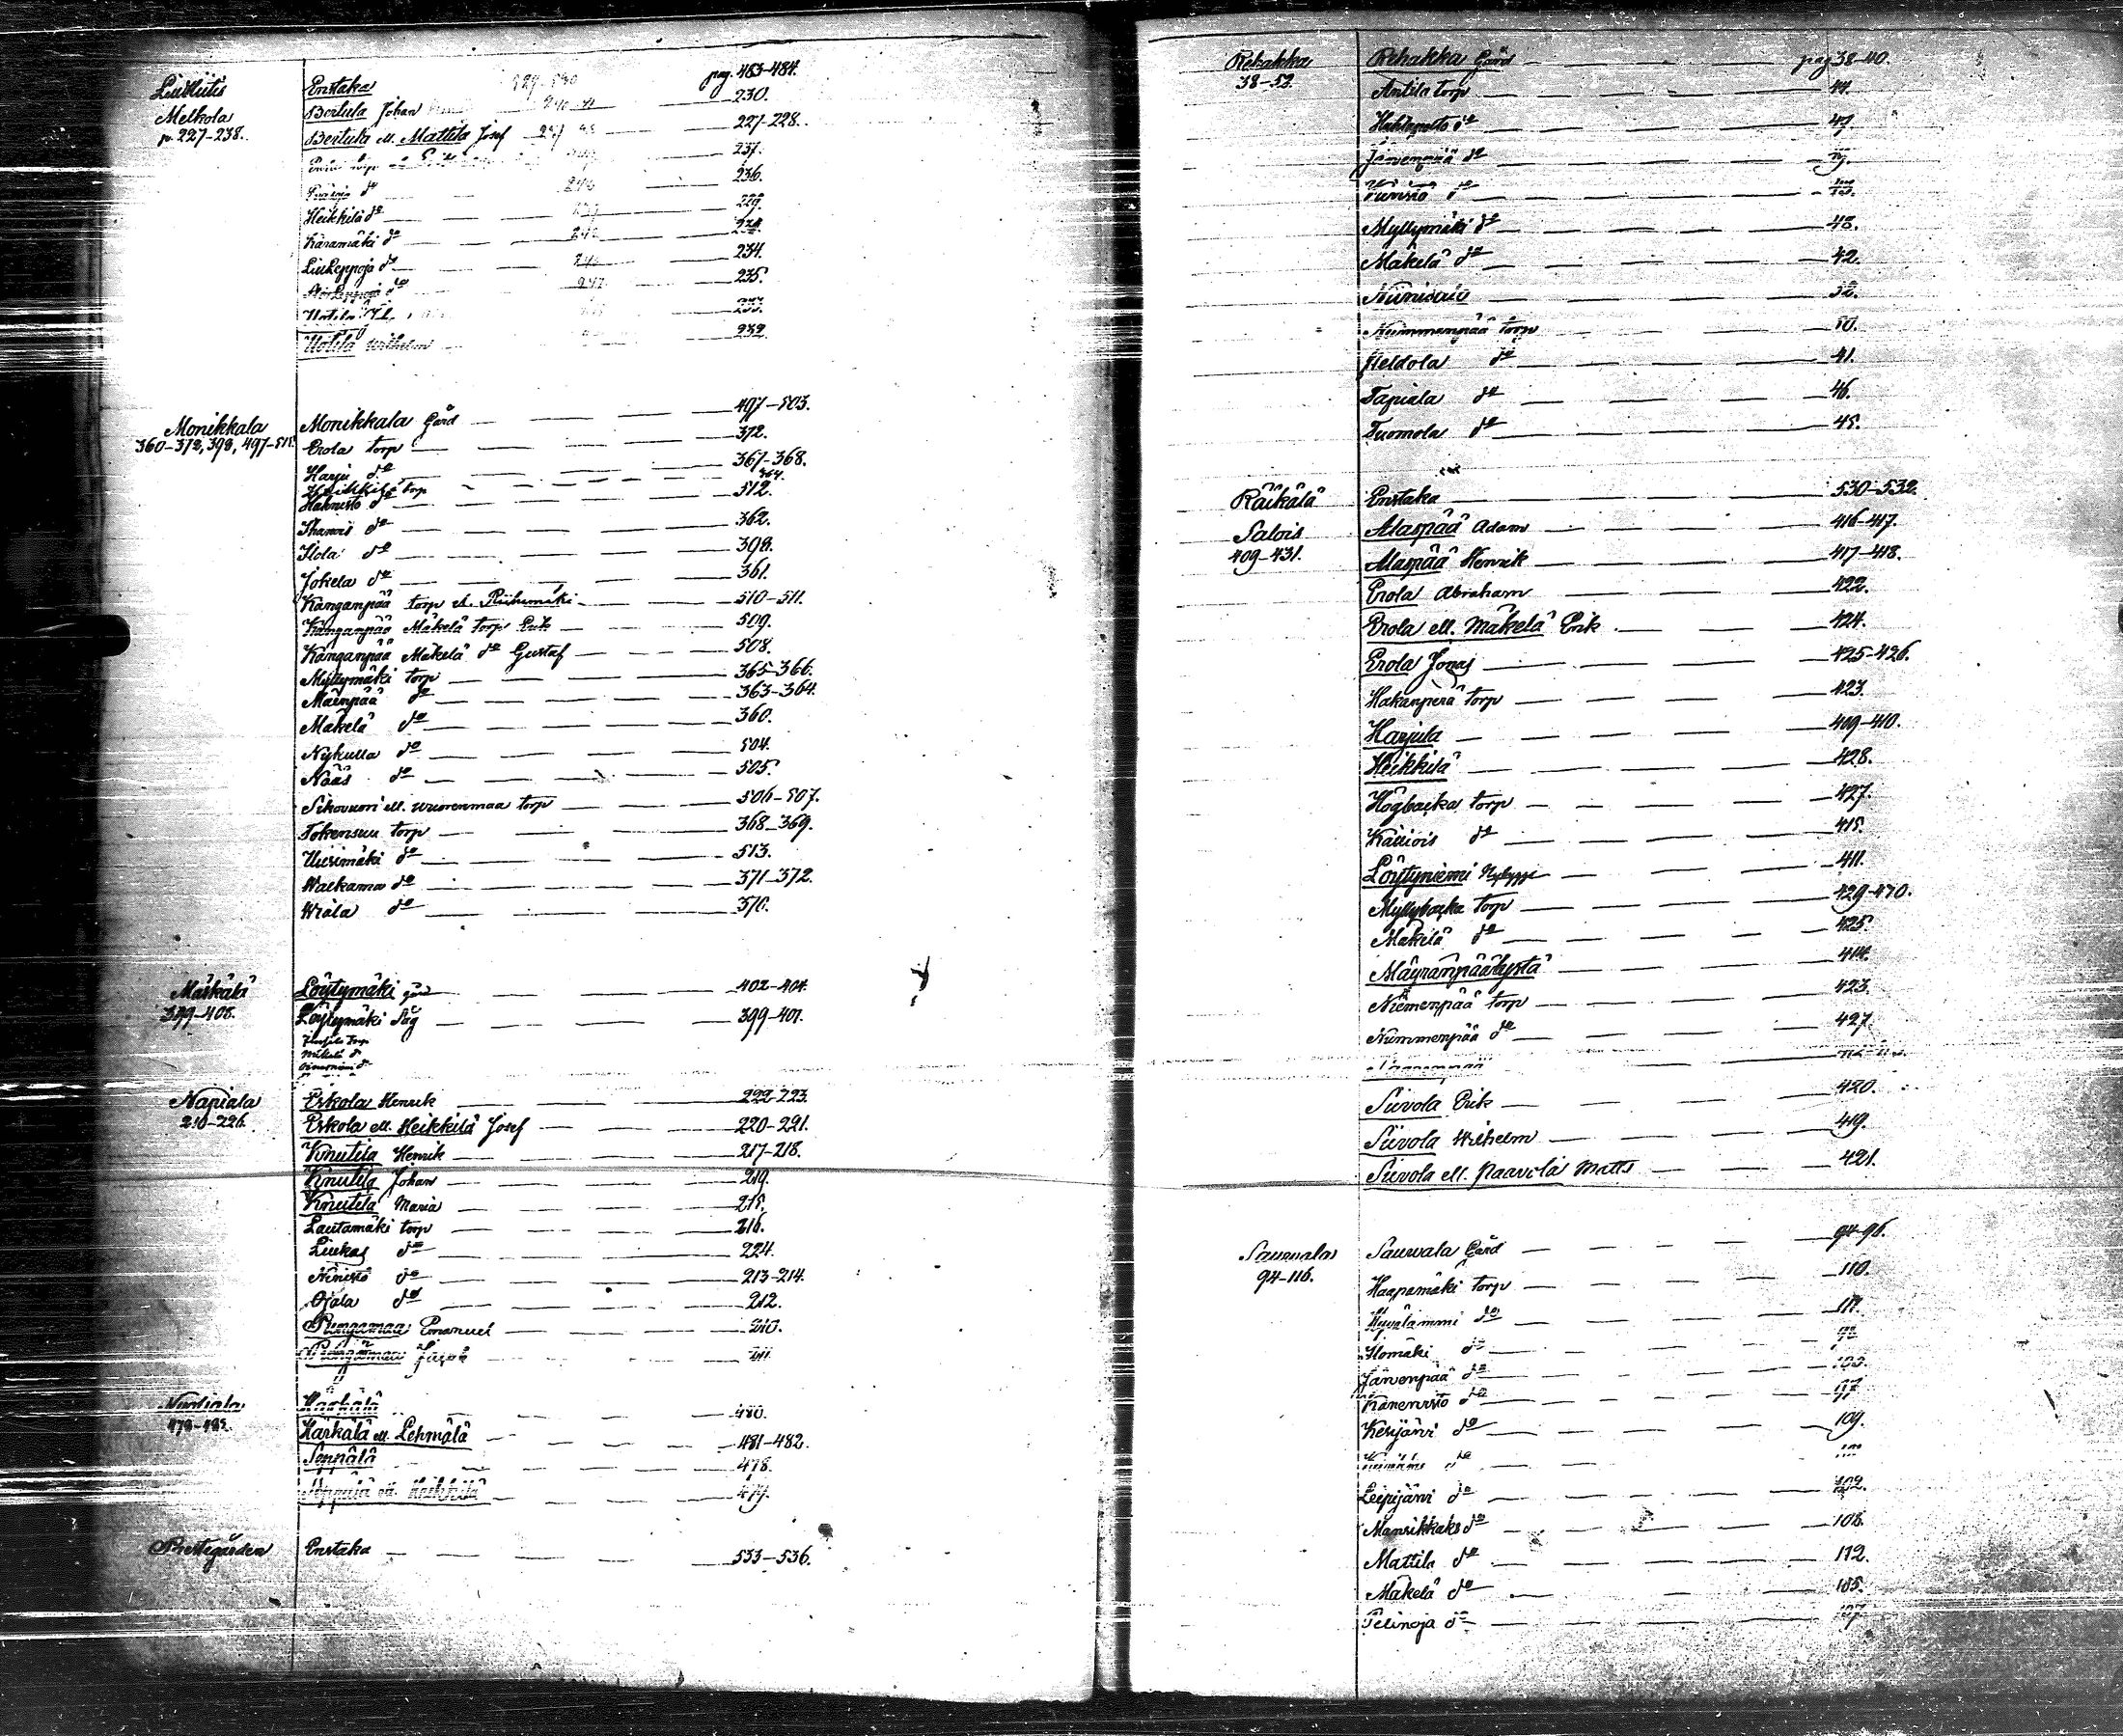 Enstaka pag. 483-484.
Melkola Bertula Johan 230.
p. 227-238. Bertula ell. Mattila Josef 227-228.
237.
do 236.
Heikkilä do 229.
Käramäki do
Liukeppoja do 234.
do 235.
233.
Uotila Wilhelm 232.
Monikkala Monikkala Gård 497-503.
360-372, 398, 497-513. Erola torp 372.
Harju do 367-368.
Heikkilä torp 364.
Hakuisto do 512.
Ihanais do 362.
Ilola do 398.
Jokela do 361.
Kanganpää torp el. Riihimäki 510-511.
Kanganpää Mäkelä torp Erik 509.
Kanganpää Mäkelä do Gustaf 508.
Myllymäki torp 365-366.
Mäenpää do 363-364.
Mäkelä do 360.
Nykulla do 504.
Nääs do 505.
Sikovuori ell. Wuorenmaa torp 506-507.
Tokensuu torp 368-369.
Uusimäki do 513.
Waekama do 371-372.
Wiala do 370.
Märkälä Löytymäki gård 402-404.
399-408. Löytymäki Såg 399-401.
torp
Mäkelä do
Napiala Eskola Henrik 222-223.
210-226. Eskola ell. Heikkilä Josef 220-221.
Knutila Henrik 217-218.
Knutila Johan 219.
Knutila Maria 215.
Lautamäki torp 216.
Liukas do 224.
Ninistö do 213-214.
Ojala do 212.
Pungamaa Emanuel 210.
Pungamaa Jakob 211.
Nurtiala Härkälä 480.
478-482. Härkälä ell. Lehmälä 481-482.
Seppälä 478.
Seppälä ell. Heikkilä 479.
Prestegården Enstaka 533-536.
Rehakka Rehakka Gård pag 38-40.
38-52. Antila torp 44.
do 47.
Järvenpää do
Kuusisto do
Myllymäki do 48.
Mäkelä do 42.
Niinisalo 52.
Nummenpää torp 50.
Peldola do 41.
Tapiala do 46.
Tuomola do 45.
Räikälä Enstaka 530-532.
Salois Alaspää Adam 416-417.
409-431. Alaspää Henrik 417-418.
Erola Abraham 422.
Erola ell. Mäkelä Erik 424.
Erola Jonas 425-426.
Hakanperä torp 423.
Harjula 409-410.
Heikkilä 428.
Högbacka torp 427.
Källiois do 415.
Löytyniemi 411.
Myllybacka torp 429-430.
Mäkelä do 425.
Mäyränpäälystä 414.
Niemenpää torp 423.
Nummenpää do 427.
Siivola Erik 420.
Siivola Wilhelm 419.
Siivola ell. Paavola Matts 421.
Sauvala Sauvala Gård 94-96.
94-116. Haapamäki torp 110.
Hyvälammi do 111.
Ilomäki do
Järvenpää do 103.
Känenisto do 97.
Kesijärvi do 109.
do
Leipijärvi do 102.
Mansikkaks do 108.
Mattila do 112.
Mäkelä do 105.
Pelinoja do 107.